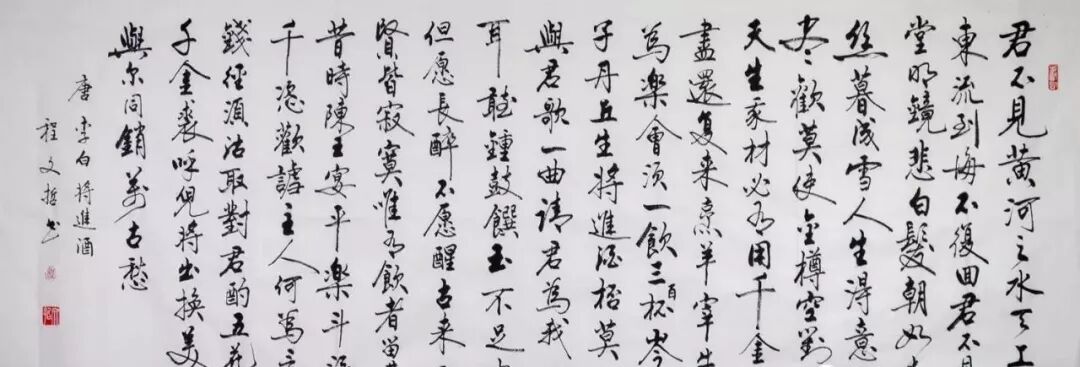 君不見黄河之水天上
東流到海不復回君不見
堂明鏡悲白髮朝如
絲暮成雪人生得意
盡歡莫使金樽空對
天生我材必有用千金
盡還復来烹羊宰牛
為樂會須一飲三百杯岑
子丹丘生將進酒杯莫
與君歌一曲請君為我
耳聽鐘鼓饌玉不足
但愿長醉不愿醒古来
賢皆寂寞唯有飲者留
昔時陳王宴平樂斗酒
千恣歡謔主人何為言
錢徑酒沽取對君酌五花
千金裘呼兒將出換美
與尔同銷萬古愁
唐 李白 將進酒
程文哲书